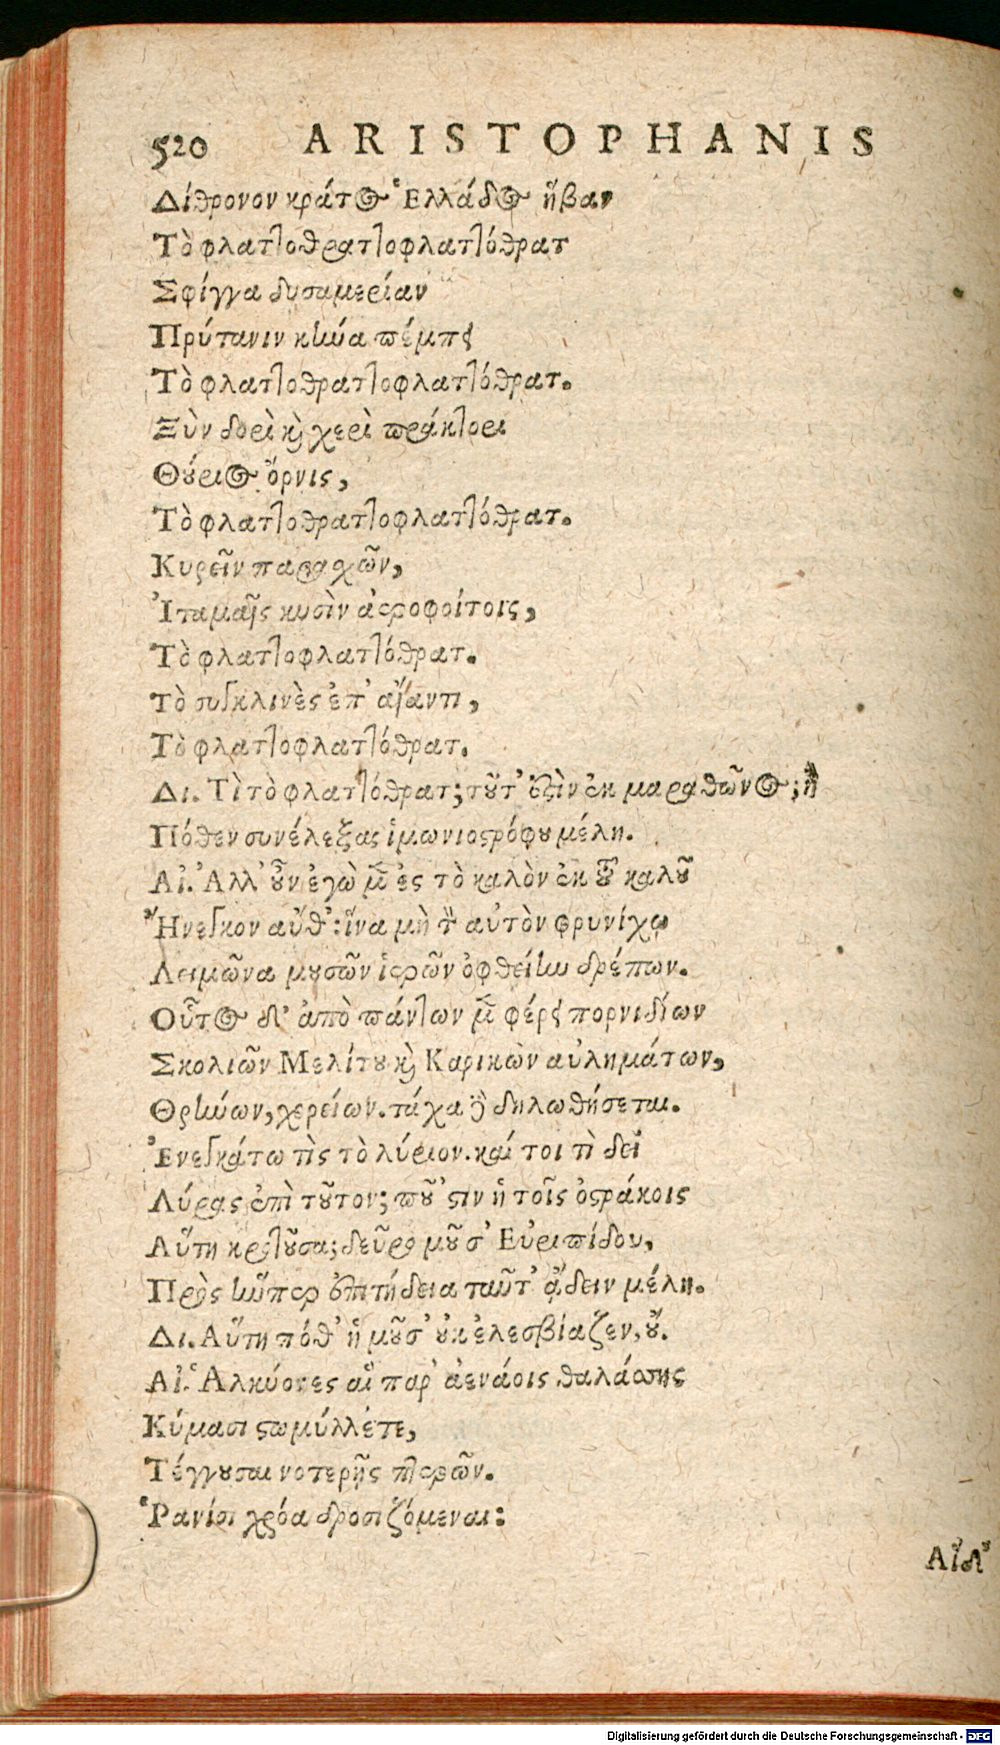 520 ARISTOPHANIS
Δίθρονον κράτος Ἑλλάδος ἥβαν
Τὸ φλαττοθρατ]οφλαττόθρατ
Σφίγγα δυσαμερίαν
Πρύτανιν κύνα πέμπει
Τὸ φλαττοθραττοφλαττόθρατ.
Ξὺν δορὶ καὶ χερὶ πράκτορι
Θούριος ὄρνις,
Τὸ φλαττοθραττοφλαττόθρατ.
Κυρεῖν παραχῶν,
Ἰταμαῖς κυσὶν ἀεροφοίτοις,
Τὸ φλαττοφλαττόθρατ.
Τὸ συγκλινὲς ἐπ' αἴαντι,
Τὸ φλαττοφλαττόθρατ.
Δι. Τὶ τὸ φλαττόθρατ; τοῦτ' ἐστὶν ἐκ μαραθῶνος; ἢ
Πόθεν συνέλεξας ἱμωνιοστρόφου μέλη.
Αἰ. Ἀλλ' οὖν ἐγὼ μὲν ἐς τὸ καλὸν ἐκ τοῦ καλοῦ
Ἤνεγκον αὔθ': ἵνα μὴ τὸν αὐτὸν φρυνίχῳ
Λειμῶνα μουσῶν ἱερῶν ὀφθείην δρέπων.
Οὗτος δ' ἀπὸ πάντων μὲν φέρει πορνιδίων
Σκολιῶν Μελίτου καὶ Καρικῶν αὐλημάτων,
Θρήνων, χερείων. τάχα δὲ δηλωθήσεται.
Ἐνεγκάτω τὶς τὸ λύριον. καί τοι τὶ δεῖ
Λύρας ἐπὶ τοῦτον; ποῦ 'στιν ἡ τοῖς ὀστράκοις
Αὕτη κροτοῦσα; δεῦρο μοῦσ' Εὐριπίδου,
Πρὸς ἥνπερ ἐπιτήδεια ταῦτ' ᾄδειν μέλη.
Δι. Αὕτη πόθ' ἡ μοῦσ' οὐκ ἐλεσβίαζεν, οὔ.
Αἰ. Ἁλκύονες αἳ παρ' ἀενάοις θαλάσσης
Κύμασι στωμύλλετε,
Τέγγουσαι νοτερῇς πτερῶν.
Ῥανίσι χρόα δροσιζόμεναι:
Αἵδ'
Digitalisierung gefördert durch die Deutsche Forschungsgemeinschaft - DFG